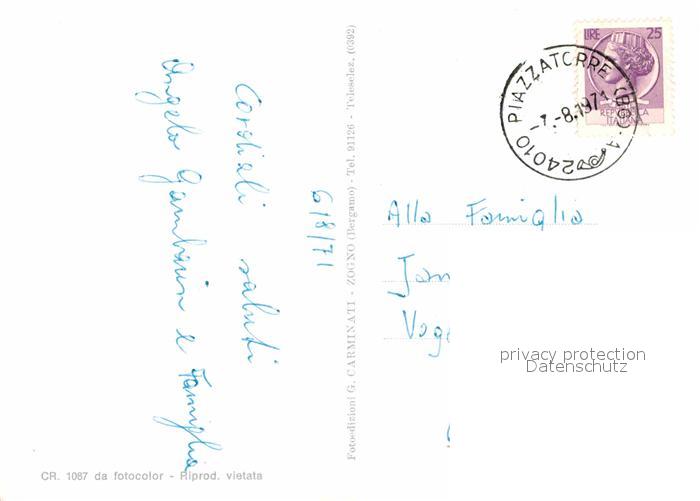 Cordiali saluti
Angelo Gambarin e Famiglia
6/8/71
Fotoedizioni G. CARMINATI - ZOGNO (Bergamo) - Tel. 91126 - Teleselez. (0392)
LIRE 25
REPUBBLICA
ITALIANA
24010 PIAZZATORRE (BG) A
-7.-8.1971
Alla Famiglia
Jan
Voge
!
privacy protection
Datenschutz
CR. 1087 da fotocolor - Riprod. vietata